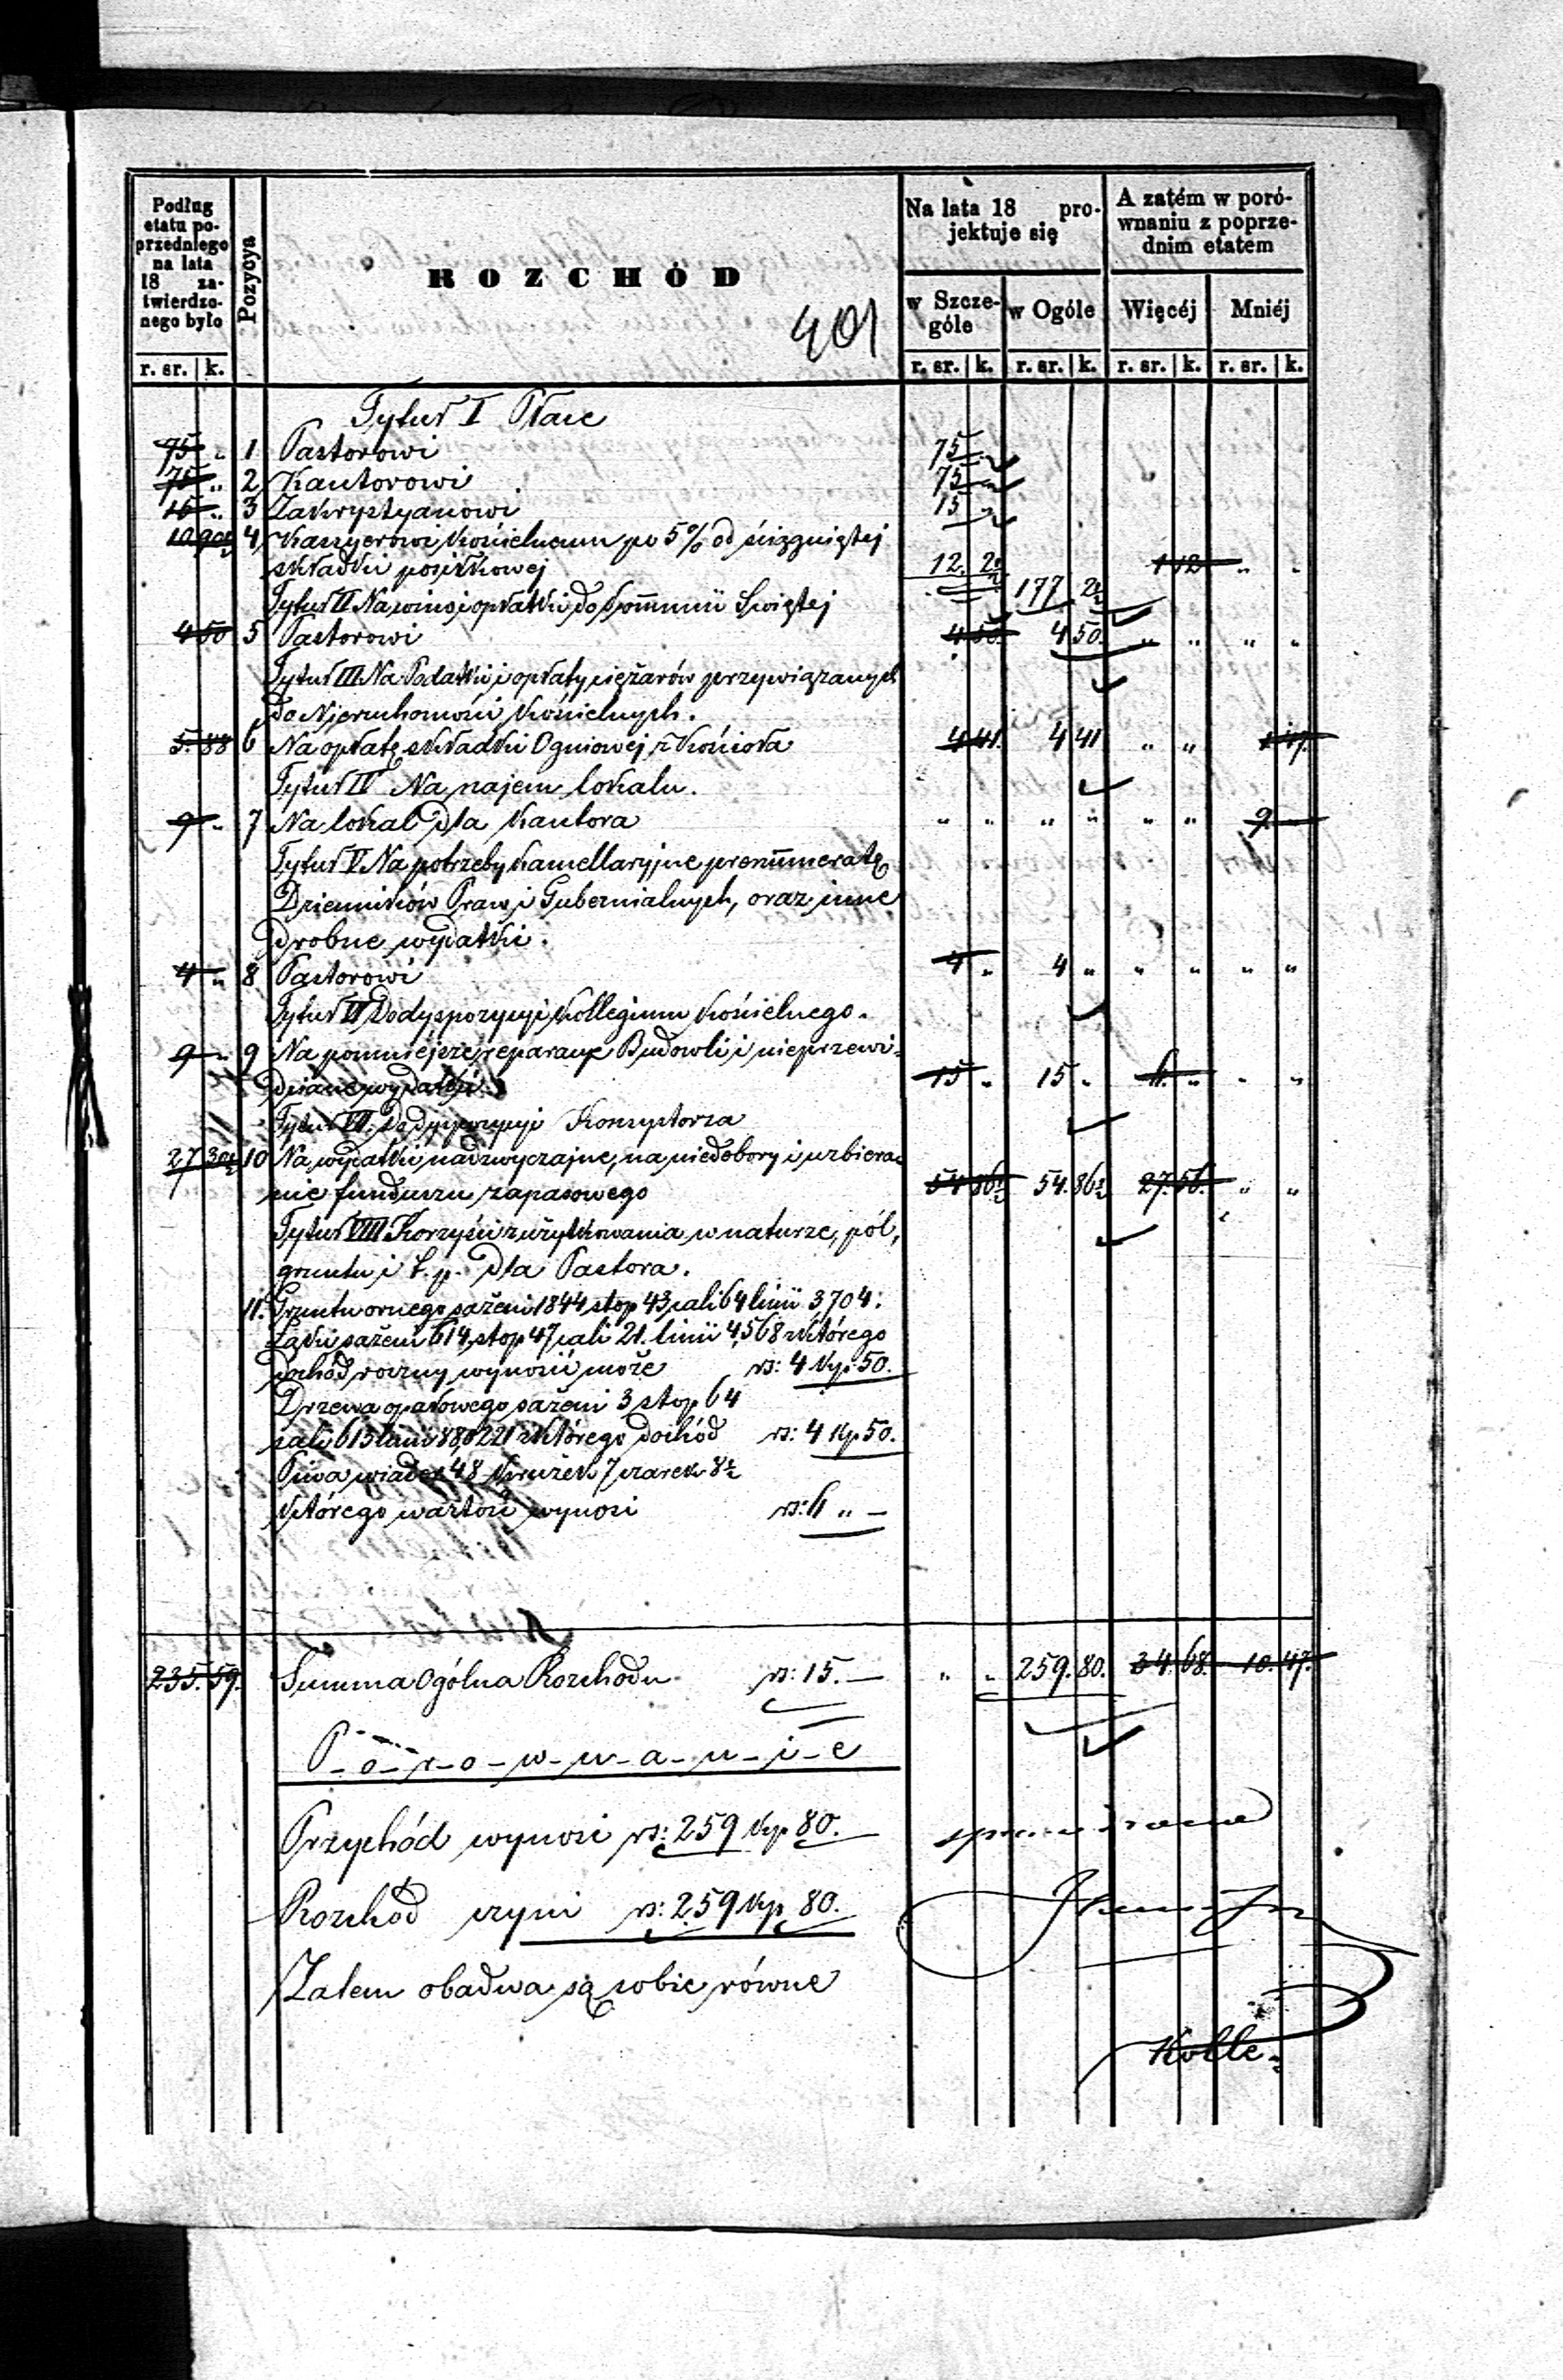 Podług etatu poprzedniego na lata 18 zatwierdzonego było
Pozycya
ROZCHÓD
401
Na lata 18 projektuje się
A zatém w porównaniu z poprzednim etatem
w Szczególe
w Ogóle
Więcéj
Mniéj
r. sr. k. r. sr. k. r. sr. k. r. sr. k. r. sr. k.
Tytuł I Płace
75 " 1 Pastorowi 75 "
75 " 2 Kantorowi 75 "
15 " 3 Zakrystyanowi 15 "
10 90½ 4 Kassyerowi Kościelnemu po 5% od ściągniętej
składki posiłkowej 12. 2½ 177 2½ 1 12 " "
Tytuł II Na wino i opłatki do Kommunii Świętej
4 50 5 Pastorowi 4 50. 4 50. " " " "
Tytuł III Na Podatki i opłaty ciężarów przywiązanych
do Nieruchomości Kościelnych.
5. 88 6 Na opłatę składki Ogniowej z Kościoła 4 41. 4 41 " " 1 47.
Tytuł IV Na najem lokalu.
9 " 7 Na lokal dla Kantora " " " " " " 9 —
Tytuł V Na potrzeby kancellaryjne prenumeratę
Dzienników Praw i Gubernialnych, oraz inne
drobne wydatki.
4 " 8 Pastorowi 4 " 4 " " " " "
Tytuł VI Do dyspozycyi Kollegium Kościelnego.
9 " 9 Na pomniejsze reparacye Budowli i nieprzewi-
dziane wydatki 15 " 15 " 6. " " "
Tytuł VII. Do dyspozycyi Konsystorza
27 30½ 10 Na wydatki nadzwyczajne, na niedobory i uzbiera-
nie funduszu zapasowego 54 86½ 54. 86½ 27. 56. " "
Tytuł VIII Korzyści z użytkowania w naturze, pól,
gruntu i t. p. dla Pastora.
11. Gruntu ornego sążeni 1844 stop 43 cali 64 linii 3,704:
Łąki sążeni 614, stop 47 cali 21. linii 4,568 z którego
dochód roczny wynosić może rs: 4 kp 50.
Drzewa opałowego sążeni 3 stop 64
cali 613 linii 880221 z którego dochód rs: 4 kp 50.
Piwa wiader 48 krużek 7 czarek 8½
którego wartość wynosi rs: 6 " —
235. 59. Summa Ogólna Rozchodu rs: 15. — " " 259. 80. 34. 68. 10. 47.
P-o-r-o-w-n-a-n-i-e
Przychód wynosi rs: 259 kp 80.
Rozchód czyni rs: 259 kp 80.
Zatem obadwa są sobie równe
Kolle-